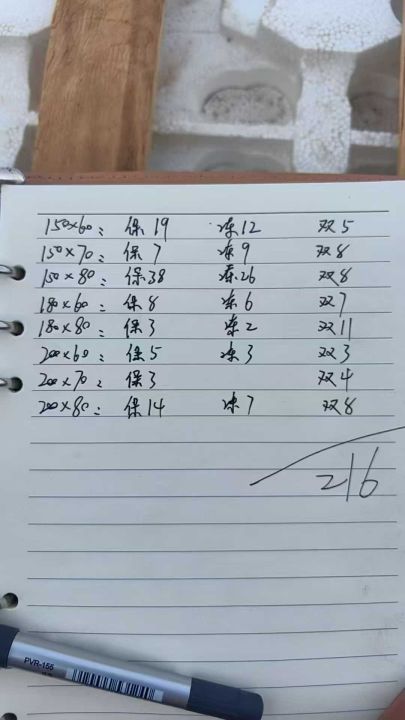 150×60: 保19 冻12 双5
150×70: 保7 冻9 双8
150×80: 保38 冻26 双8
180×60: 保8 冻6 双7
180×80: 保3 冻2 双11
200×60: 保5 冻3 双3
200×70: 保3 双4
200×80: 保14 冻7 双8
216
PVR-155